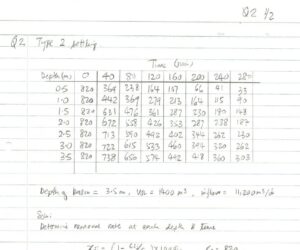 Q2 1/2
Q2. Type 2 settling
Time (min)
Depth (m) 0 40 80 120 160 200 240 280
0.5 820 369 238 164 107 66 41 33
1.0 820 442 369 279 213 164 115 90
1.5 820 631 476 361 287 230 180 148
2.0 820 672 558 426 353 287 238 187
2.5 820 713 590 492 402 344 262 230
3.0 820 722 615 533 460 394 320 262
3.5 820 738 650 574 492 418 360 303
Depth of basin = 3.5m, Vol = 1400 m³, inflow = 11,200 m³/d
Soln:
Determine removal rate at each depth & time